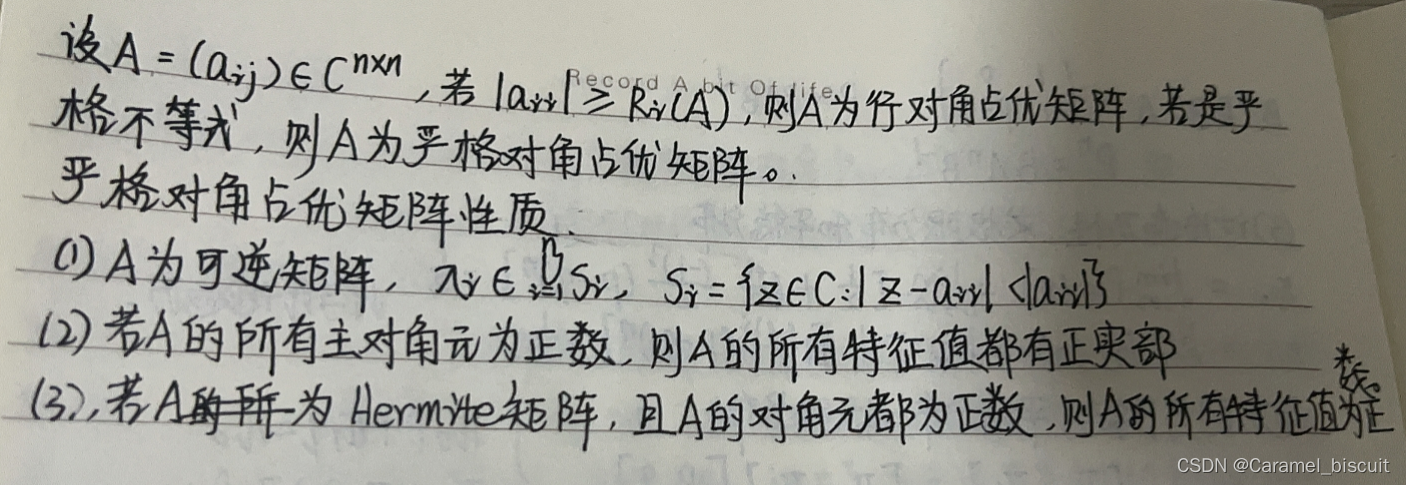 设A=(aij)∈C^{n×n},若|aii|≥Ri(A),则A为行对角占优矩阵,若是严
Record A bit Of life
格不等式,则A为严格对角占优矩阵。
严格对角占优矩阵性质.
(1)A为可逆矩阵, λi∈⋃_{i=1}^{n}Si, Si={z∈C:|z-aii|<|aii|}
(2)若A的所有主对角元为正数,则A的所有特征值都有正实部
(3),若A为Hermite矩阵,且A的对角元都为正数,则A的所有特征值为正数。
CSDN @Caramel_biscuit